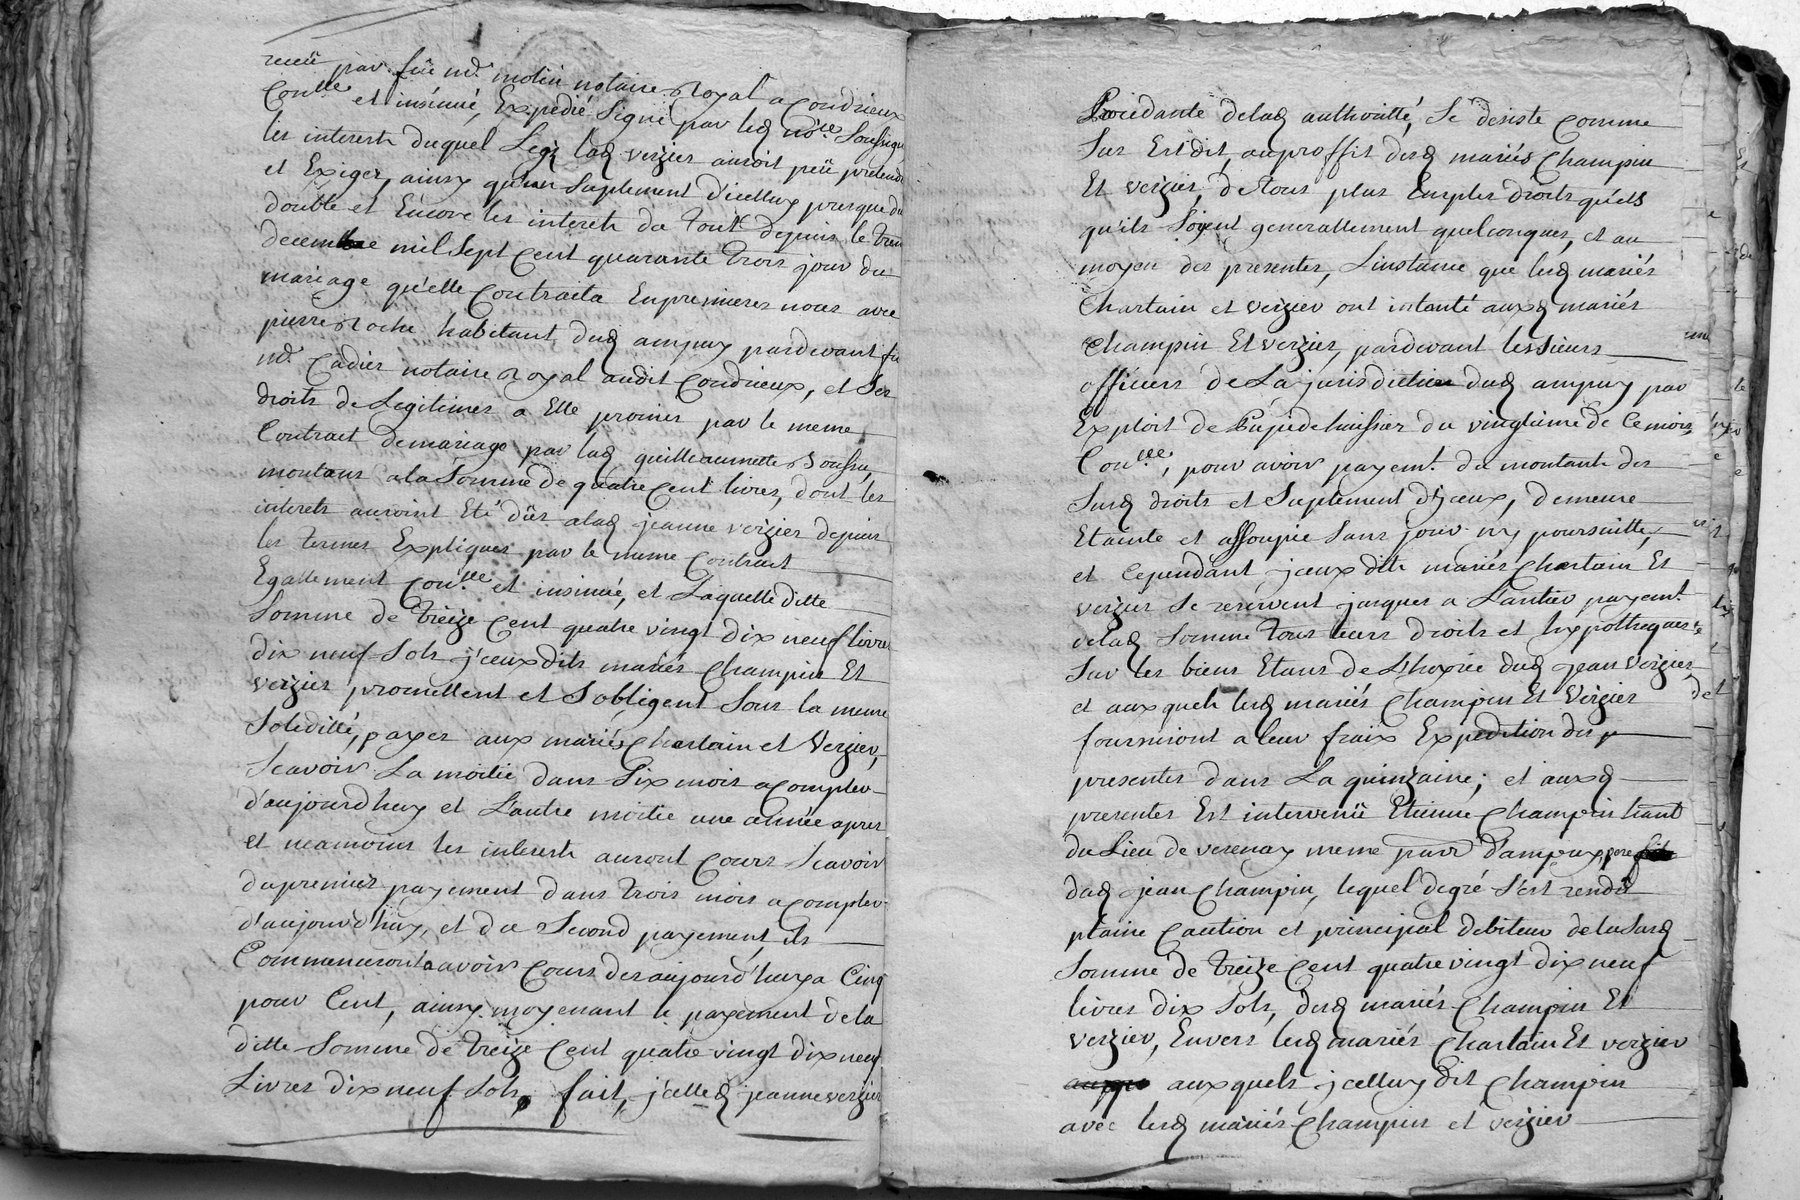 receü par feü me. motin notaire Royal a Condrieux
Conllé et insinué, Expedié Signé par led nore. Soussigné
les interests duquel Legs lad verzier auroit peü pretendre
et Exiger, ainsy qu'un Suplement d'icelluy presque du
double et Encore les interets du Tout depuis le
decembre mil Sept Cent quarante Trois jour du
mariage qu'elle Contracta En premieres noces avec
pierre Roche habitant dud ampuy pardevant fu
me. Cadier notaire Royal audit Condrieux, et Ses
droits de Legitimes a Elle promis par le meme
Contract de mariage par lad guillaumette
montans a la Somme de quatre Cent livres, dont les
interets auroint Eté dûs alad jeanne verzier depuis
les termes Expliqués par le meme Contract
Egallement Conllé et insinué, et Laquelle ditte
Somme de Treize Cent quatre vingt dix neuf livres
dix neuf Sols j'ceux dits mariés Champin Et
verzier promettent et S'obligent Sous la meme
Soliditté, payer aux mariés Chartain et Verzier,
Scavoir La moitié dans Six mois a compter
d'aujourd'huy et L'autre moitié une année apres
et neamoins les interests auront Cours Scavoir
du premier payement dans trois mois a compter
d'aujourd'huy, et du Second payement, ils
Commenceront a avoir Cours des aujourd'huy a Cinq
pour Cent, ainsy moyenant le payement de la
ditte Somme de Treize Cent quatre vingt dix neuf
Livres dix neuf Sols, fait, j'celled jeanne verzier
Procédante delad authoritté, Se desiste Comme
Sus Est dit, au proffit desd mariés Champin
Et verzier, de Tous plus Emples droits quels
qu'ils Soyent generallement quelconques, et au
moyen des presentes, L'instance que lesd mariés
Chartain et verzier ont intanté auxd mariés
Champin Et verzier, pardevant les Sieurs
officiers de La jurisdiction dud ampuy par
Exploit de huissier du vingtième de Ce mois,
Conllé, pour avoir payemt. du montant des
Susd droits et Suplement d'jceux, demeure
Etainte et assoupie Sans jour ny poursuitte,
et Cependant jceux dits mariés Chartain Et
verzier Se reservent jusques a L'antier payemt
delad Somme Tous leurs droits et hypotheques
Sur les biens Etans de L'hoirie dud jean Verzier,
et auxquels lesd mariés Champin Et Verzier
fourniront a leur fraix Expedition des p
presentes dans La quinzaine; et auxd
presentes Est intervenü Etienne Champin hant
du Lieu de verenay meme parr d'ampuy, pere
dud jean Champin, lequel de gré S'est rendû
plaine Caution et principal debiteur de la Susd
Somme de Treize Cent quatre vingt dix neuf
livres dix Sols, desd mariés Champin Et
verzier, Envers lesd mariés Chartain Et verzier
auxquels jcelluy dit Champin
avec lesd mariés Champin et verzier